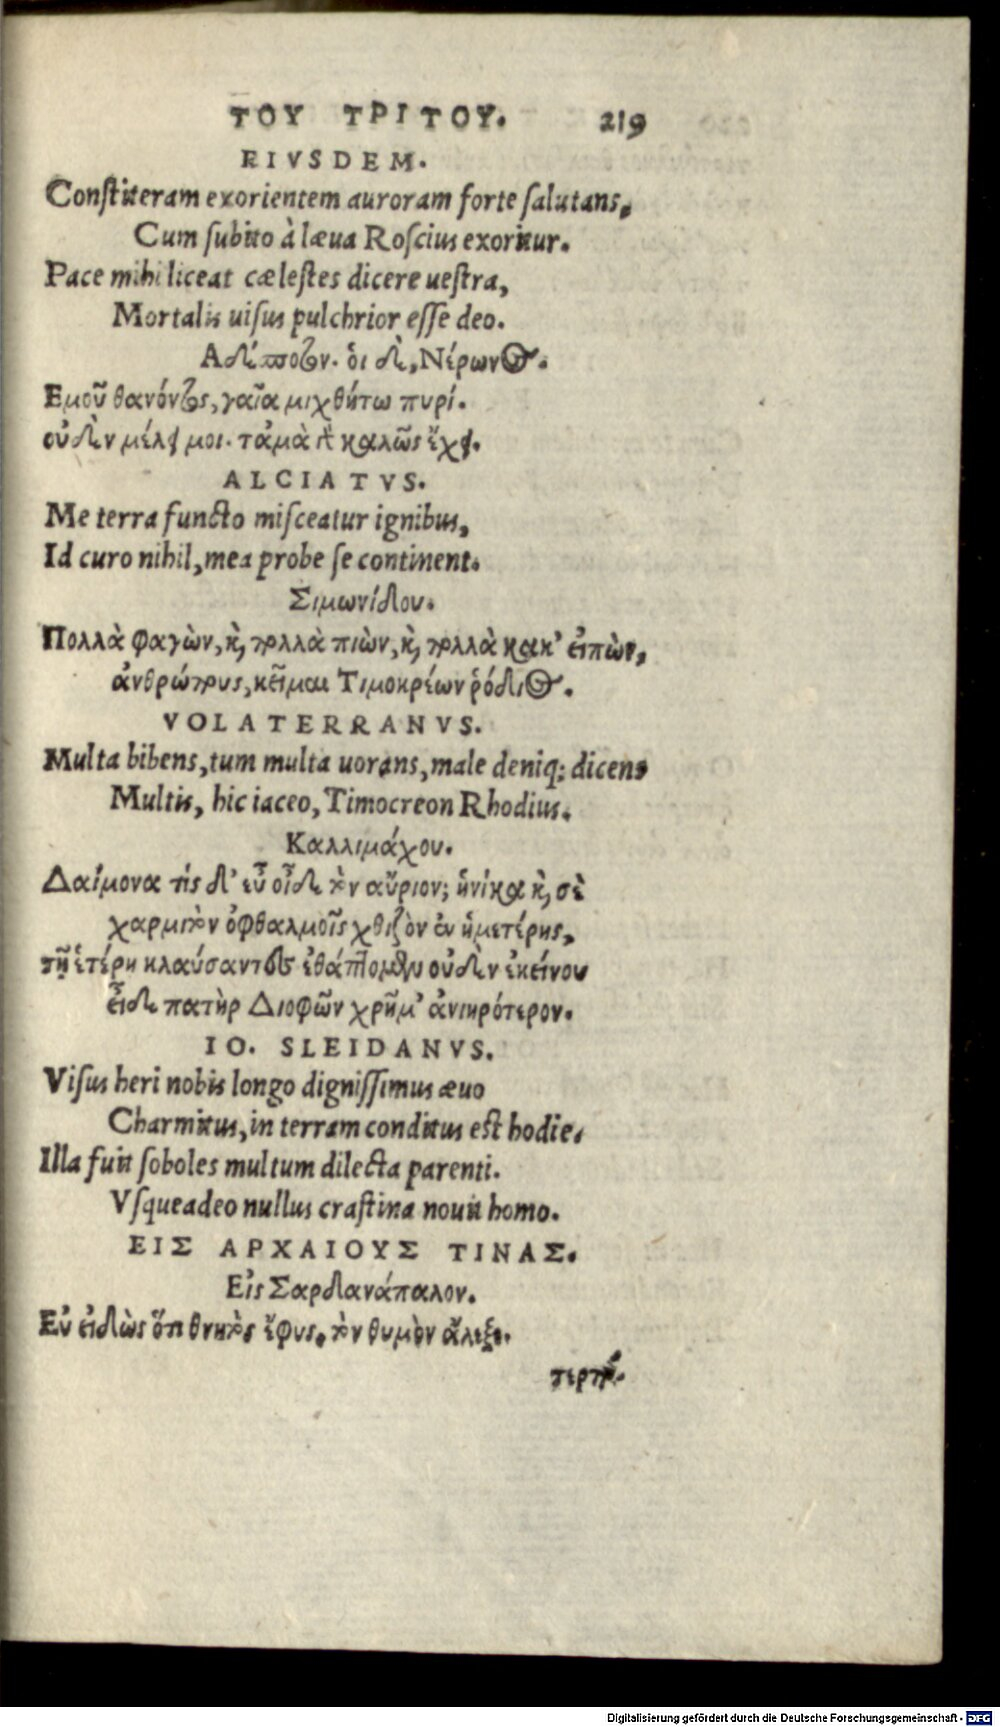 ΤΟΥ ΤΡΙΤΟΥ. 219
EIVSDEM.
Constiteram exorientem auroram forte salutans,
Cum subito à læua Roscius exoritur.
Pace mihi liceat cælestes dicere uestra,
Mortalis uisus pulchrior esse deo.
Αδέσποτον. ὁι δὲ, Νέρωνος.
Εμοῦ θανόντος, γαῖα μιχθήτω πυρί.
οὐδὲν μέλει μοι. τἀμὰ γὸ καλῶς ἔχει.
ALCIATVS.
Me terra functo misceatur ignibus,
Id curo nihil, mea probe se continent.
Σιμωνίδου.
Πολλὰ φαγὼν, κὶ, πολλὰ πιὼν, κὶ, πολλὰ κακ' εἰπὼν,
ἀνθρώπους, κεῖμαι Τιμοκρέων ῥόδιος.
VOLATERRANVS.
Multa bibens, tum multa uorans, male deniq; dicens
Multis, hic iaceo, Timocreon Rhodius.
Καλλιμάχου.
Δαίμονα τίς δ' εὖ οἶδε τὸν αὔριον; ἡνίκα κὶ, σὲ
χαρμιτὸν ὀφθαλμοῖς χθιζὸν ἐν ἡμετέρης,
τῇ ἑτέρῃ κλαύσαντες ἐθάπτομεν οὐδὲν ἐκείνου
εἶδε πατὴρ Διοφῶν χρῆμ' ἀνιηρότερον.
IO. SLEIDANVS.
Visus heri nobis longo dignissimus æuo
Charmitus, in terram conditus est hodie.
Illa fuit soboles multum dilecta parenti.
Vsqueadeo nullus crastina nouit homo.
ΕΙΣ ΑΡΧΑΙΟΥΣ ΤΙΝΑΣ.
Εἰς Σαρδανάπαλον.
Εὐ εἰδὼς ὅτι θνητὸς ἔφυς, τὸν θυμὸν ἄλεξε.
Digitalisierung gefördert durch die Deutsche Forschungsgemeinschaft - DFG